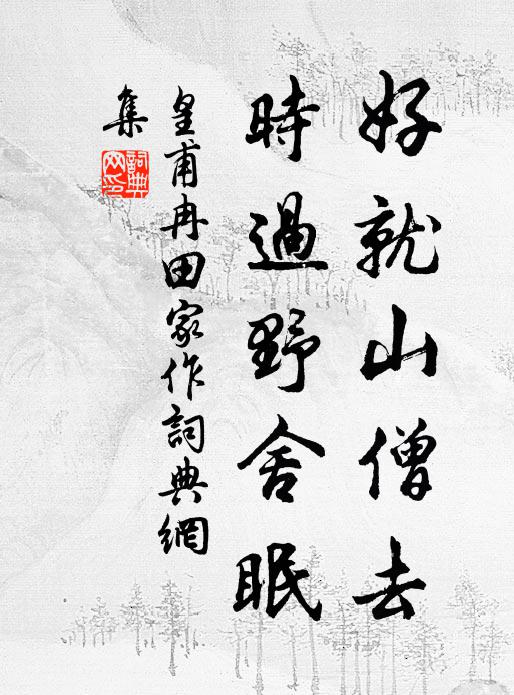 好就山僧去
時過野舍眠
皇甫冉田家作詞典網
集
詞典
网印